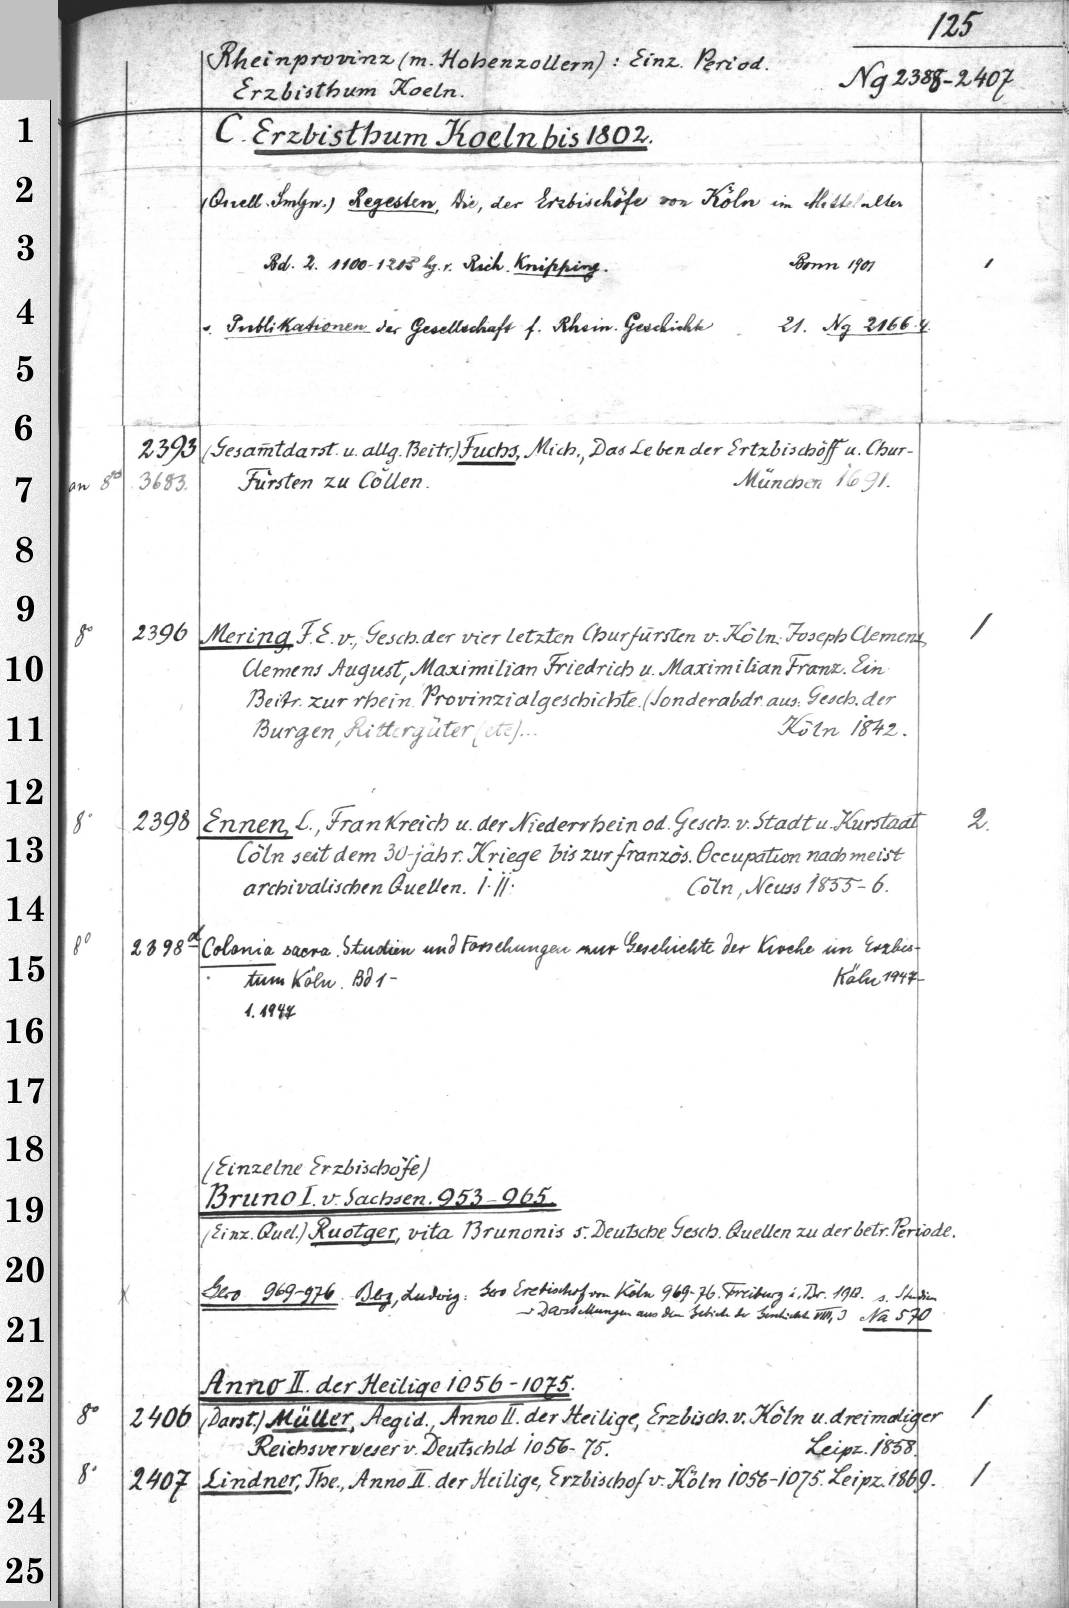 125
Rheinprovinz (m. Hohenzollern) : Einz. Period.
Erzbisthum Koeln.
Ng 2388-2407
1
C. Erzbisthum Koeln bis 1802.
2
(Quell. Smlgn.) Regesten, Die, der Erzbischöfe von Köln im Mittelalter
3
Bd. 2. 1100-1205 hg. v. Rich. Knipping. Bonn 1901 1
4
s. Publikationen der Gesellschaft f. Rhein. Geschichte 21. Ng 2166 y.
5
6
2393 (Gesam̅tdarst. u. allg. Beitr.) Fuchs, Mich., Das Leben der Ertzbischöff u. Chur-
7 an 8° 3683. Fürsten zu Cöllen. München 1691.
8
9
8° 2396 Mering, F. E. v., Gesch. der vier letzten Churfürsten v. Köln: Joseph Clemens, 1
10 Clemens August, Maximilian Friedrich u. Maximilian Franz. Ein
Beitr. zur rhein. Provinzialgeschichte. (Sonderabdr. aus: Gesch. der
11 Burgen, Rittergüter [etc]... Köln 1842.
12
8° 2398 Ennen, L., Frankreich u. der Niederrhein od. Gesch. v. Stadt u. Kurstaat 2.
13 Cöln seit dem 30-jähr. Kriege bis zur französ. Occupation nach meist
14 archivalischen Quellen. I. II. Cöln, Neuss 1855-6.
8° 2398 d Colonia sacra. Studien und Forschungen zur Geschichte der Kirche im Erzbis-
15 tum Köln. Bd 1- Köln 1947-
1. 1947
16
17
18
(Einzelne Erzbischöfe)
19 Bruno I. v. Sachsen. 953-965.
(Einz. Quel.) Ruotger, vita Brunonis s. Deutsche Gesch. Quellen zu der betr. Periode.
20
Gero 969-976. Berg, Ludwig: Gero Erzbischof von Köln 969-76. Freiburg i. Br. 1913. s. Studien
u Darstellungen aus dem Gebiete der Geschichte VIII, 3 Na 570
21
22 Anno II. der Heilige 1056-1075.
8° 2406 (Darst.) Müller, Aegid., Anno II. der Heilige, Erzbisch. v. Köln u. dreimaliger 1
23 Reichsverweser v. Deutschld 1056-75. Leipz. 1858.
8° 2407 Lindner, The., Anno II. der Heilige, Erzbischof v. Köln 1056-1075. Leipz. 1869. 1
24
25